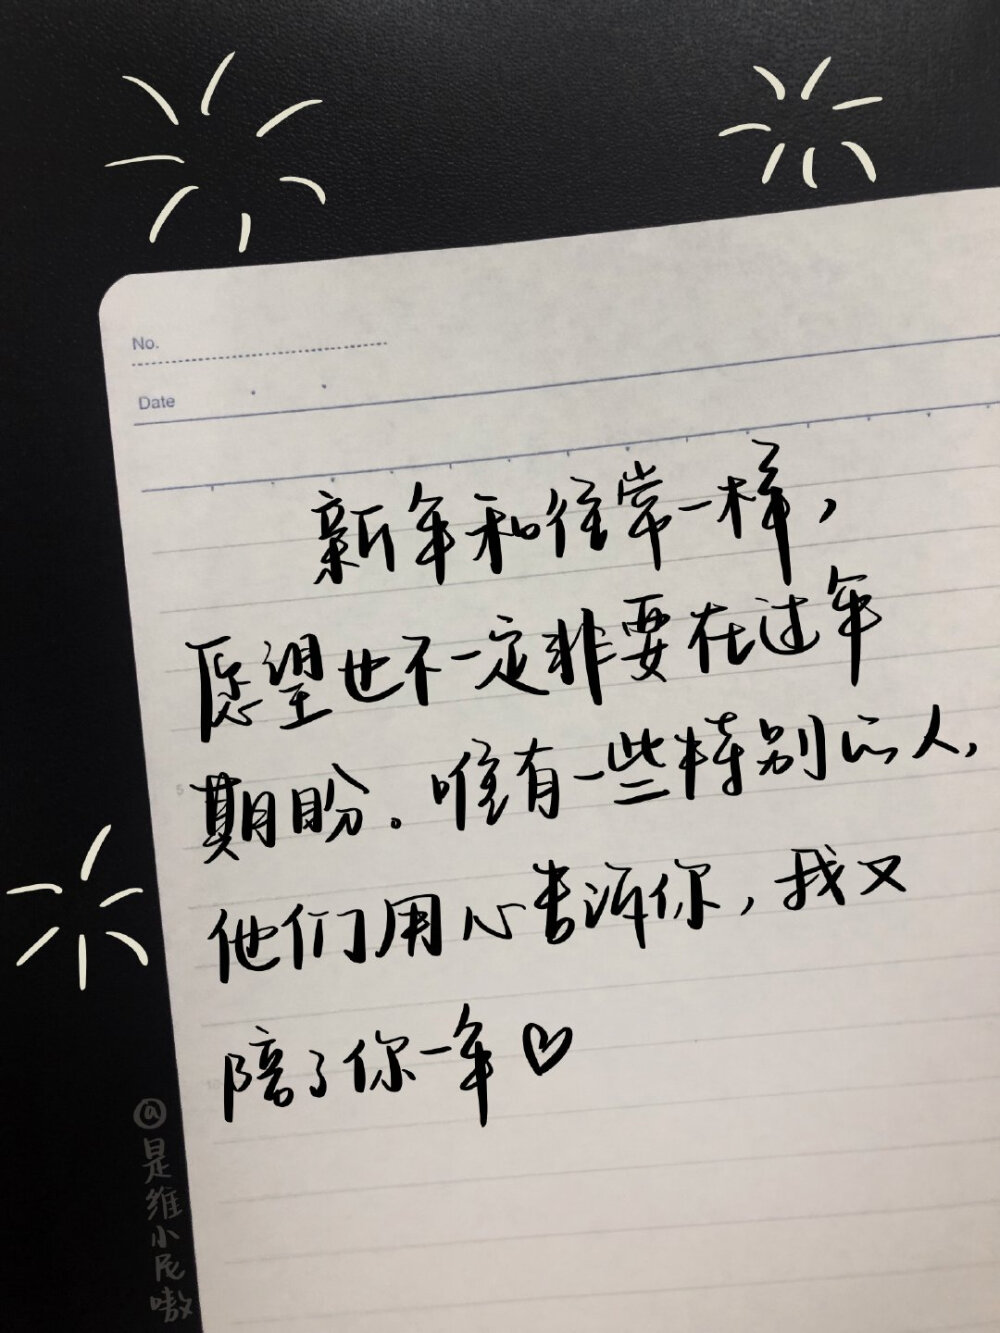 No.
Date
新年和往常一样，
愿望也不一定非要在过年
期盼。唯有一些特别的人，
他们用心告诉你，我又
陪了你一年♡
@是维小尼嗷